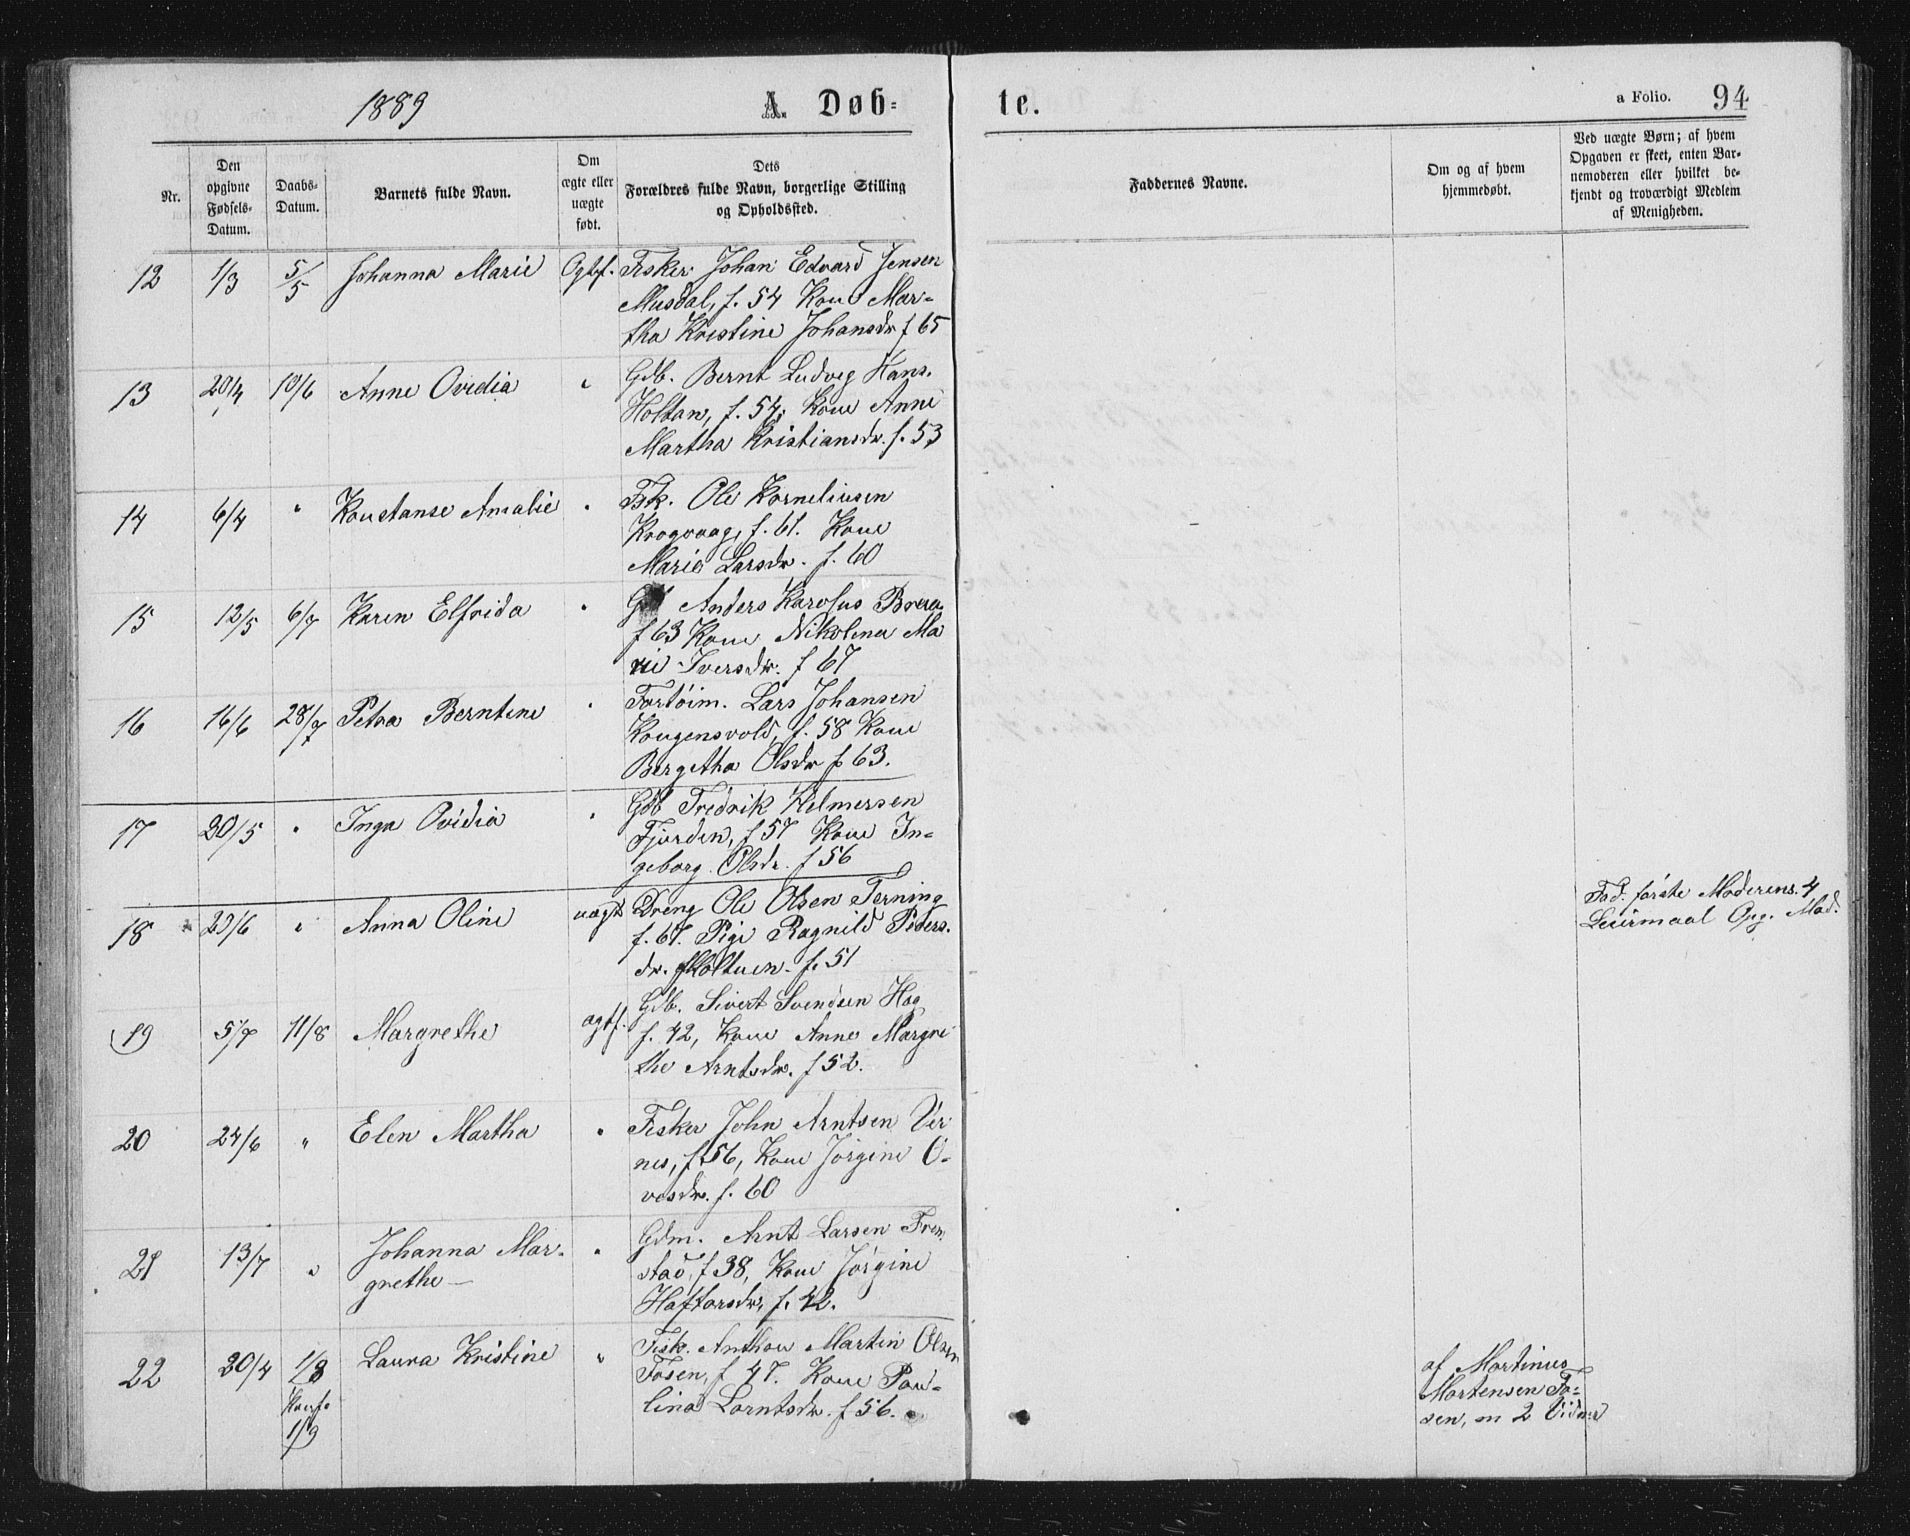 1889
A. Døb-
te.
a Folio. 94
Nr.
Den
opgivne
Fødsels-
Datum.
Daabs-
Datum.
Barnets fulde Navn.
Om
ægte eller
uægte
født.
Dets
Forældres fulde Navn, borgerlige Stilling
og Opholdssted.
Faddernes Navne.
Om og af hvem
hjemmedøbt.
Ved uægte Børn; af hvem
Opgaven er skeet, enten Bar-
nemoderen eller hvilket be-
kjendt og troværdigt Medlem
af Menigheden.
12 1/3 5/5 Johanna Marie Ægtf. Fisker Johan Edvard Jensen
Musdal, f. 54 Kone Mar-
tha Kristine Johansdr f 65
13 20/4 10/6 Anne Ovidia " Gdb. Bernt Ludvig Hans.
Holtan, f. 54, Kone Anne
Martha Kristiansdr. f. 53
14 6/4 " Konstanse Amalie " Fsk. Ole Korneliusen
Krogvaag, f. 61. Kone
Marie Larsdr. f. 60
15 12/5 6/7 Karen Elfrida " Anders Karolus
f 63 Kone Nikolina Ma
rie Iversdr. f 67
16 16/6 28/7 Petra Berntine " Fortøim. Lars Johansen
Kongensvold, f. 58 Kone
Bergetha Olsdr f 63.
17 20/5 " Inga Ovidia " Gdb Fredrik Hilmersen
Fjorden, f 57 Kone In-
geborg Olsdr. f 56
18 23/6 " Anna Oline uægt Dreng Ole Olsen Terning
f. 67. Pige Ragnild Peders.
dr. f. 51
Fad. første Moderens 4
Leiermaal Opg. Mod.
19 5/7 11/8 Margrethe ægtf. Gdb. Sivert Svendsen Hag
f. 42, Kone Anne Margre
the Arntsdr. f 52.
20 24/6 " Elen Martha " Fisker John Arntsen Ver
nes, f. 56, Kone Jørgine O-
vesdr. f. 60
21 13/7 " Johanna Mar-
grethe " Gdm. Arnt Larsen Frem
stad, f 38, Kone Jørgine
Haftorsdr, f. 42.
22 20/4 1/8
Konf.
1/9 Laura Kristine " Fisk. Anthon Martin Olsen
Fosen, f 47. Kone Pau-
lina Lorntsdr. f 56.
af Martinus
Mortensen Fo-
sen, m 2 Vidner